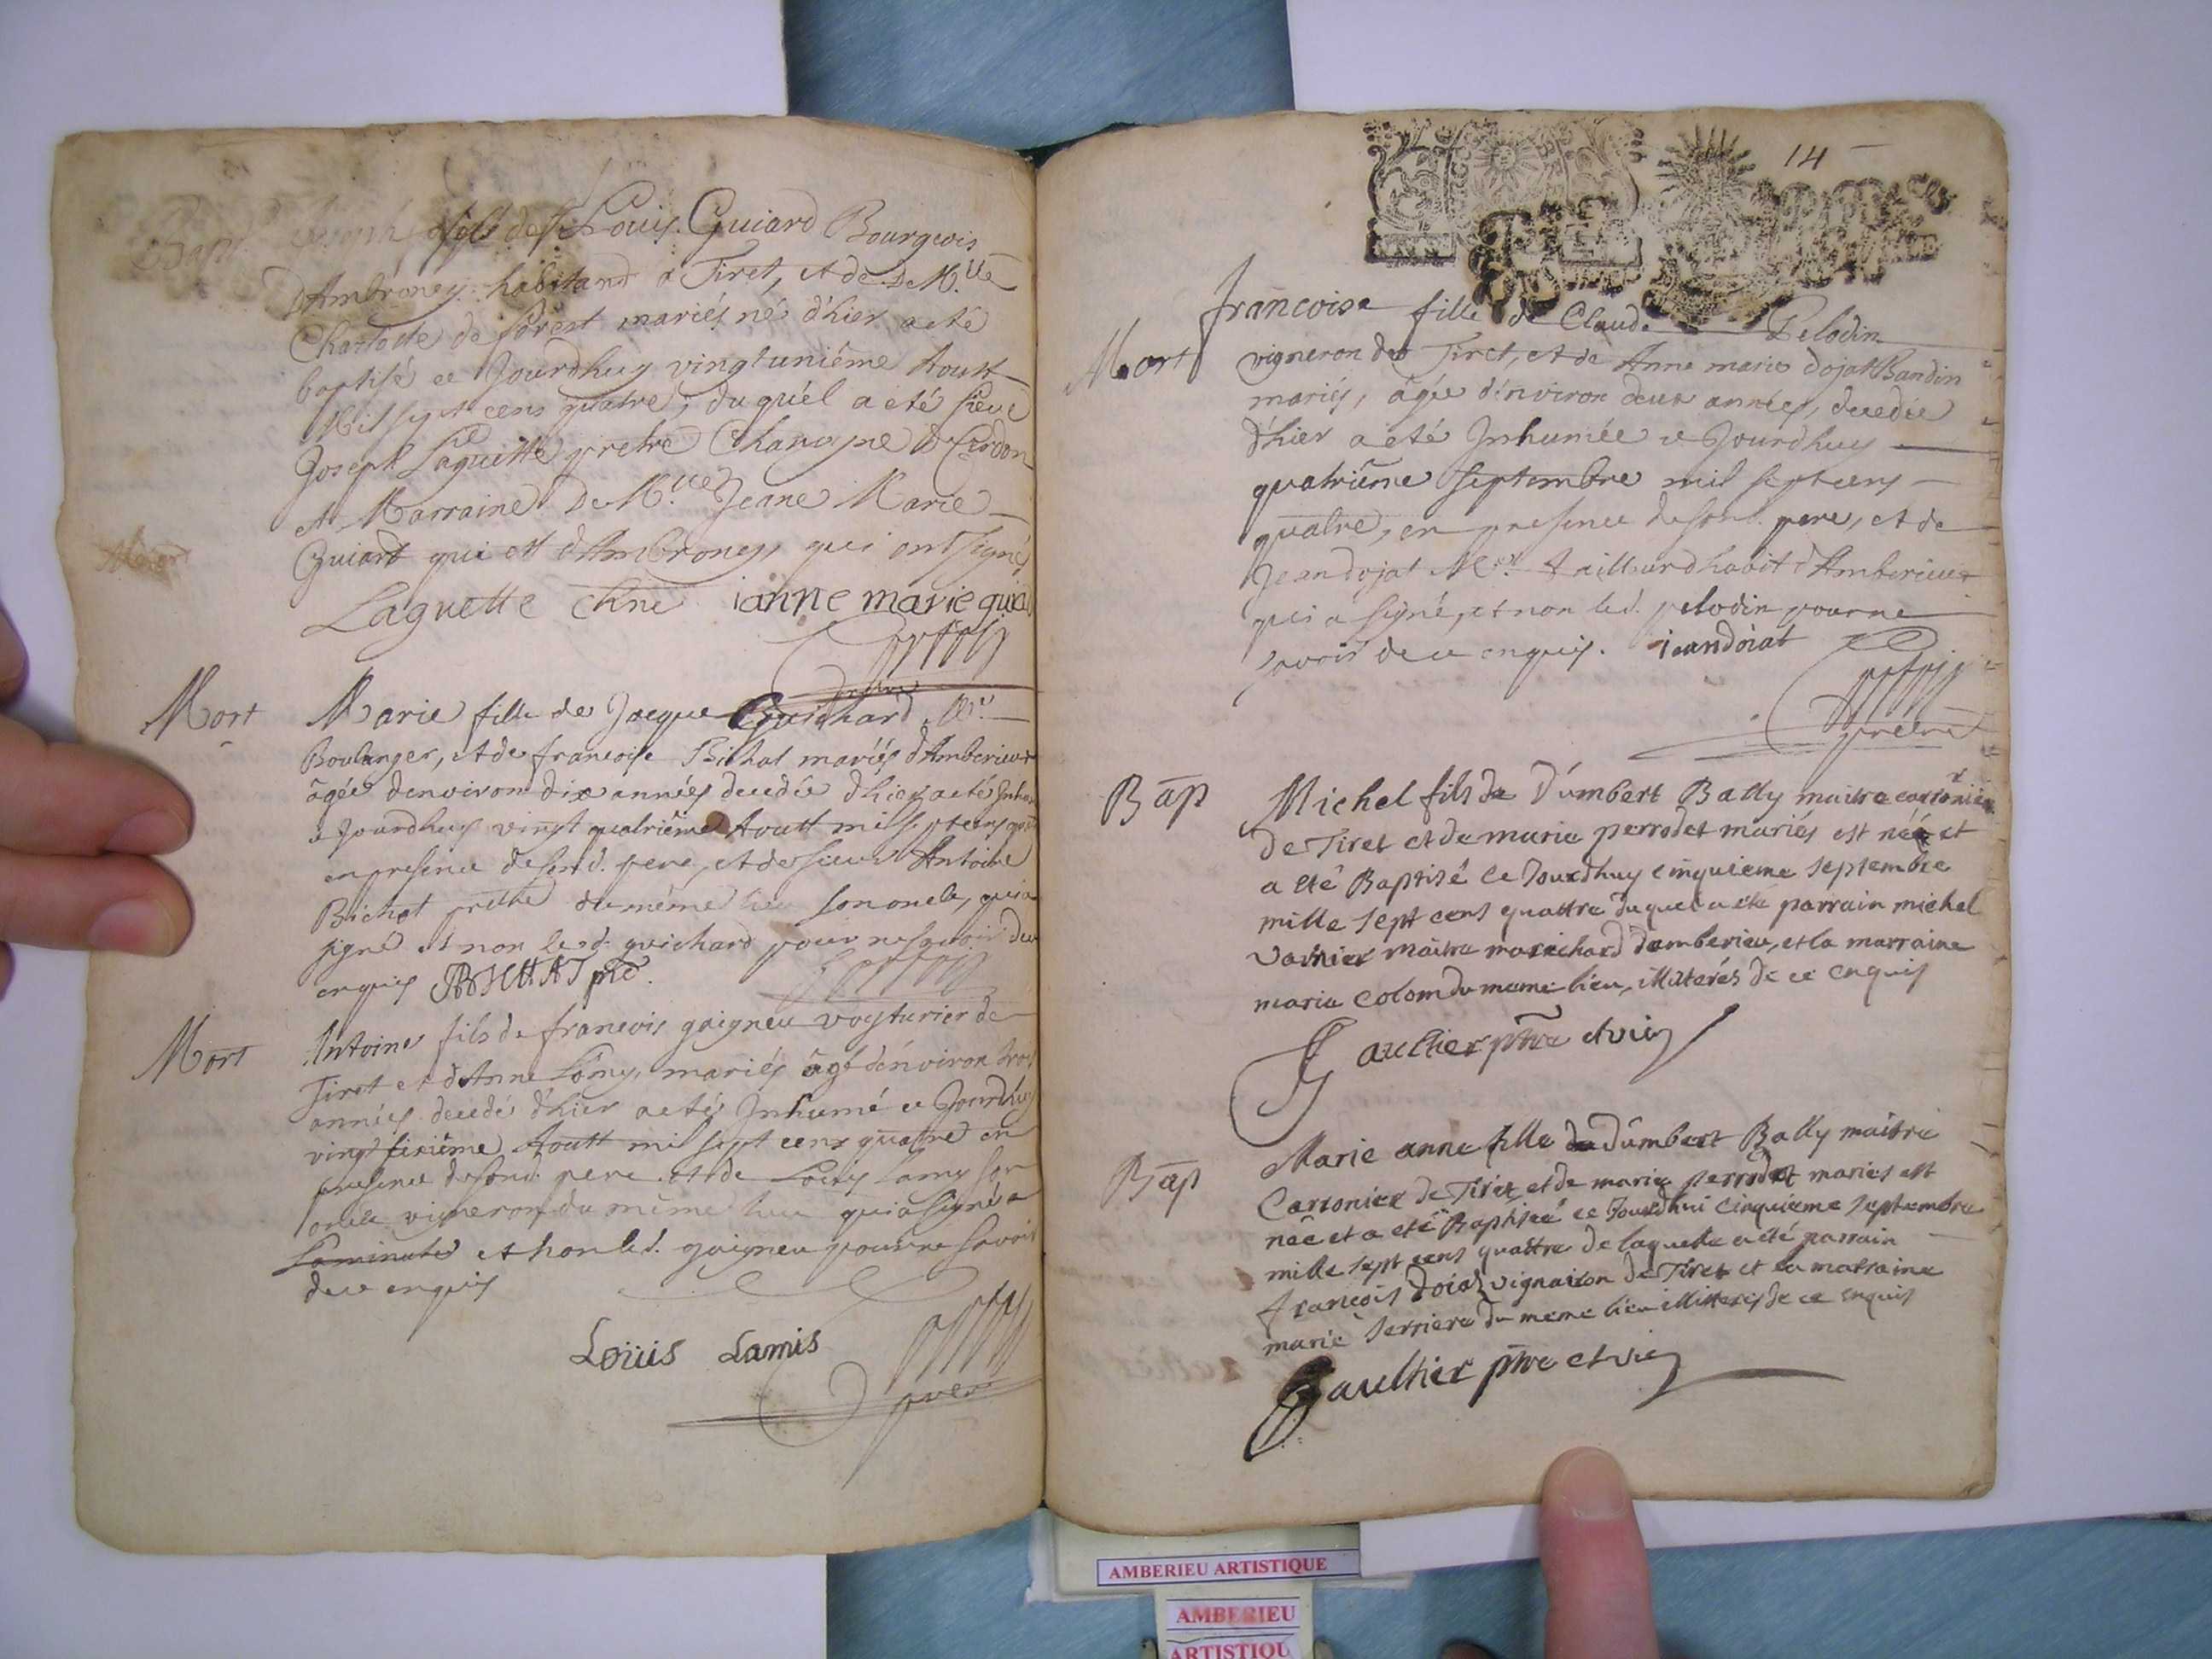 Bapt. Joseph fils de sr Louis Guiard Bourgeois
d'Ambroney habitand a Tiret, et de De M.lle
Charlotte de forest mariés né d'hier a eté
baptisé ce Jourdhuy vingtunième Aoust
Mil sept cens quatre, duquél a eté sieur
Joseph Laguette pretre Chanoyne
et Marraine De M.lle Jeane Marie
Guiard qui est d'Ambroney, qui ont signé,
Laguette chne ianne marie guia
Mort
Marie fille de Jacque Guichard M.e
Boulanger, et de francoise Bichat mariés d'Amberieux
âgée d'environ dix années decedée d'hier a eté Inhu
ce Jourdhuy vingt quatriême Aoutt mil sept cens
en presence de sond. pere, et de sieur Antoine
Bichat prethe du même lieu son oncle, qui a
signé et non led. guichard pour ne sçavoir de ce
enquis ABICHAT ptr.
Mort
Antoine fils de francois gaigneu voyturier de
Tiret et d'Anne Lamy, mariés âgé d'énviron trois
années decedé d'hier a eté Inhumé ce Jourdhuy
vingt sixiême Aoutt mil sept cens quatre en
presence de sond. pere et de Louis Lamy son
oncle vigneron du même lieu qui a signé a
La minute et non led. gaigneu pour ne savoir
de ce enquis
Louis Lamis
14
francoise fille de Claude Pelodin
Mort
vigneron de Tiret, et de Anne marie dojat Bandin
mariés, âgée d'énviron deux années, decedée
d'hier a eté Inhumée ce Jourdhuy
quatriême septembre mil sept cens
quatre, en presence de sond. pere, et de
Jean dojat M.e tailleur d habit d'Amberieux
qui a signé, et non led. pelodin pour ne
savoir de ce enquis. iean doiat
prêtre
Bap
Michel fils de D'umbert Bally maitre cartonier
de Tiret et de marie perrodet mariés est né et
a eté Baptisé ce Jourdhuy cinquieme septembre
mille sept cens quattre duquel a eté parrain michel
varnier maitre marichard damberieu, et la marraine
marie colom du meme lieu, illiterés de ce enquis
Gaultier ptre et vic
Bap
Marie anne fille de Dûmbert Bally maitre
Cartonier de Tiret et de marie perrodet mariés est
née et a eté Baptisée ce Jourdhui Cinquieme septembre
mille sept cens quattre de laquelle a eté parrain
francois Doiat vignairon de Tiret et la marraine
marie serriere du meme lieu illitterés de ce enquis
Gaultier ptre et vic
AMBERIEU ARTISTIQUE
AMBERIEU
ARTISTIQU